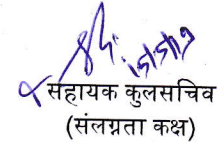 सहायक कुलसचिव
(संलग्नता कक्ष)